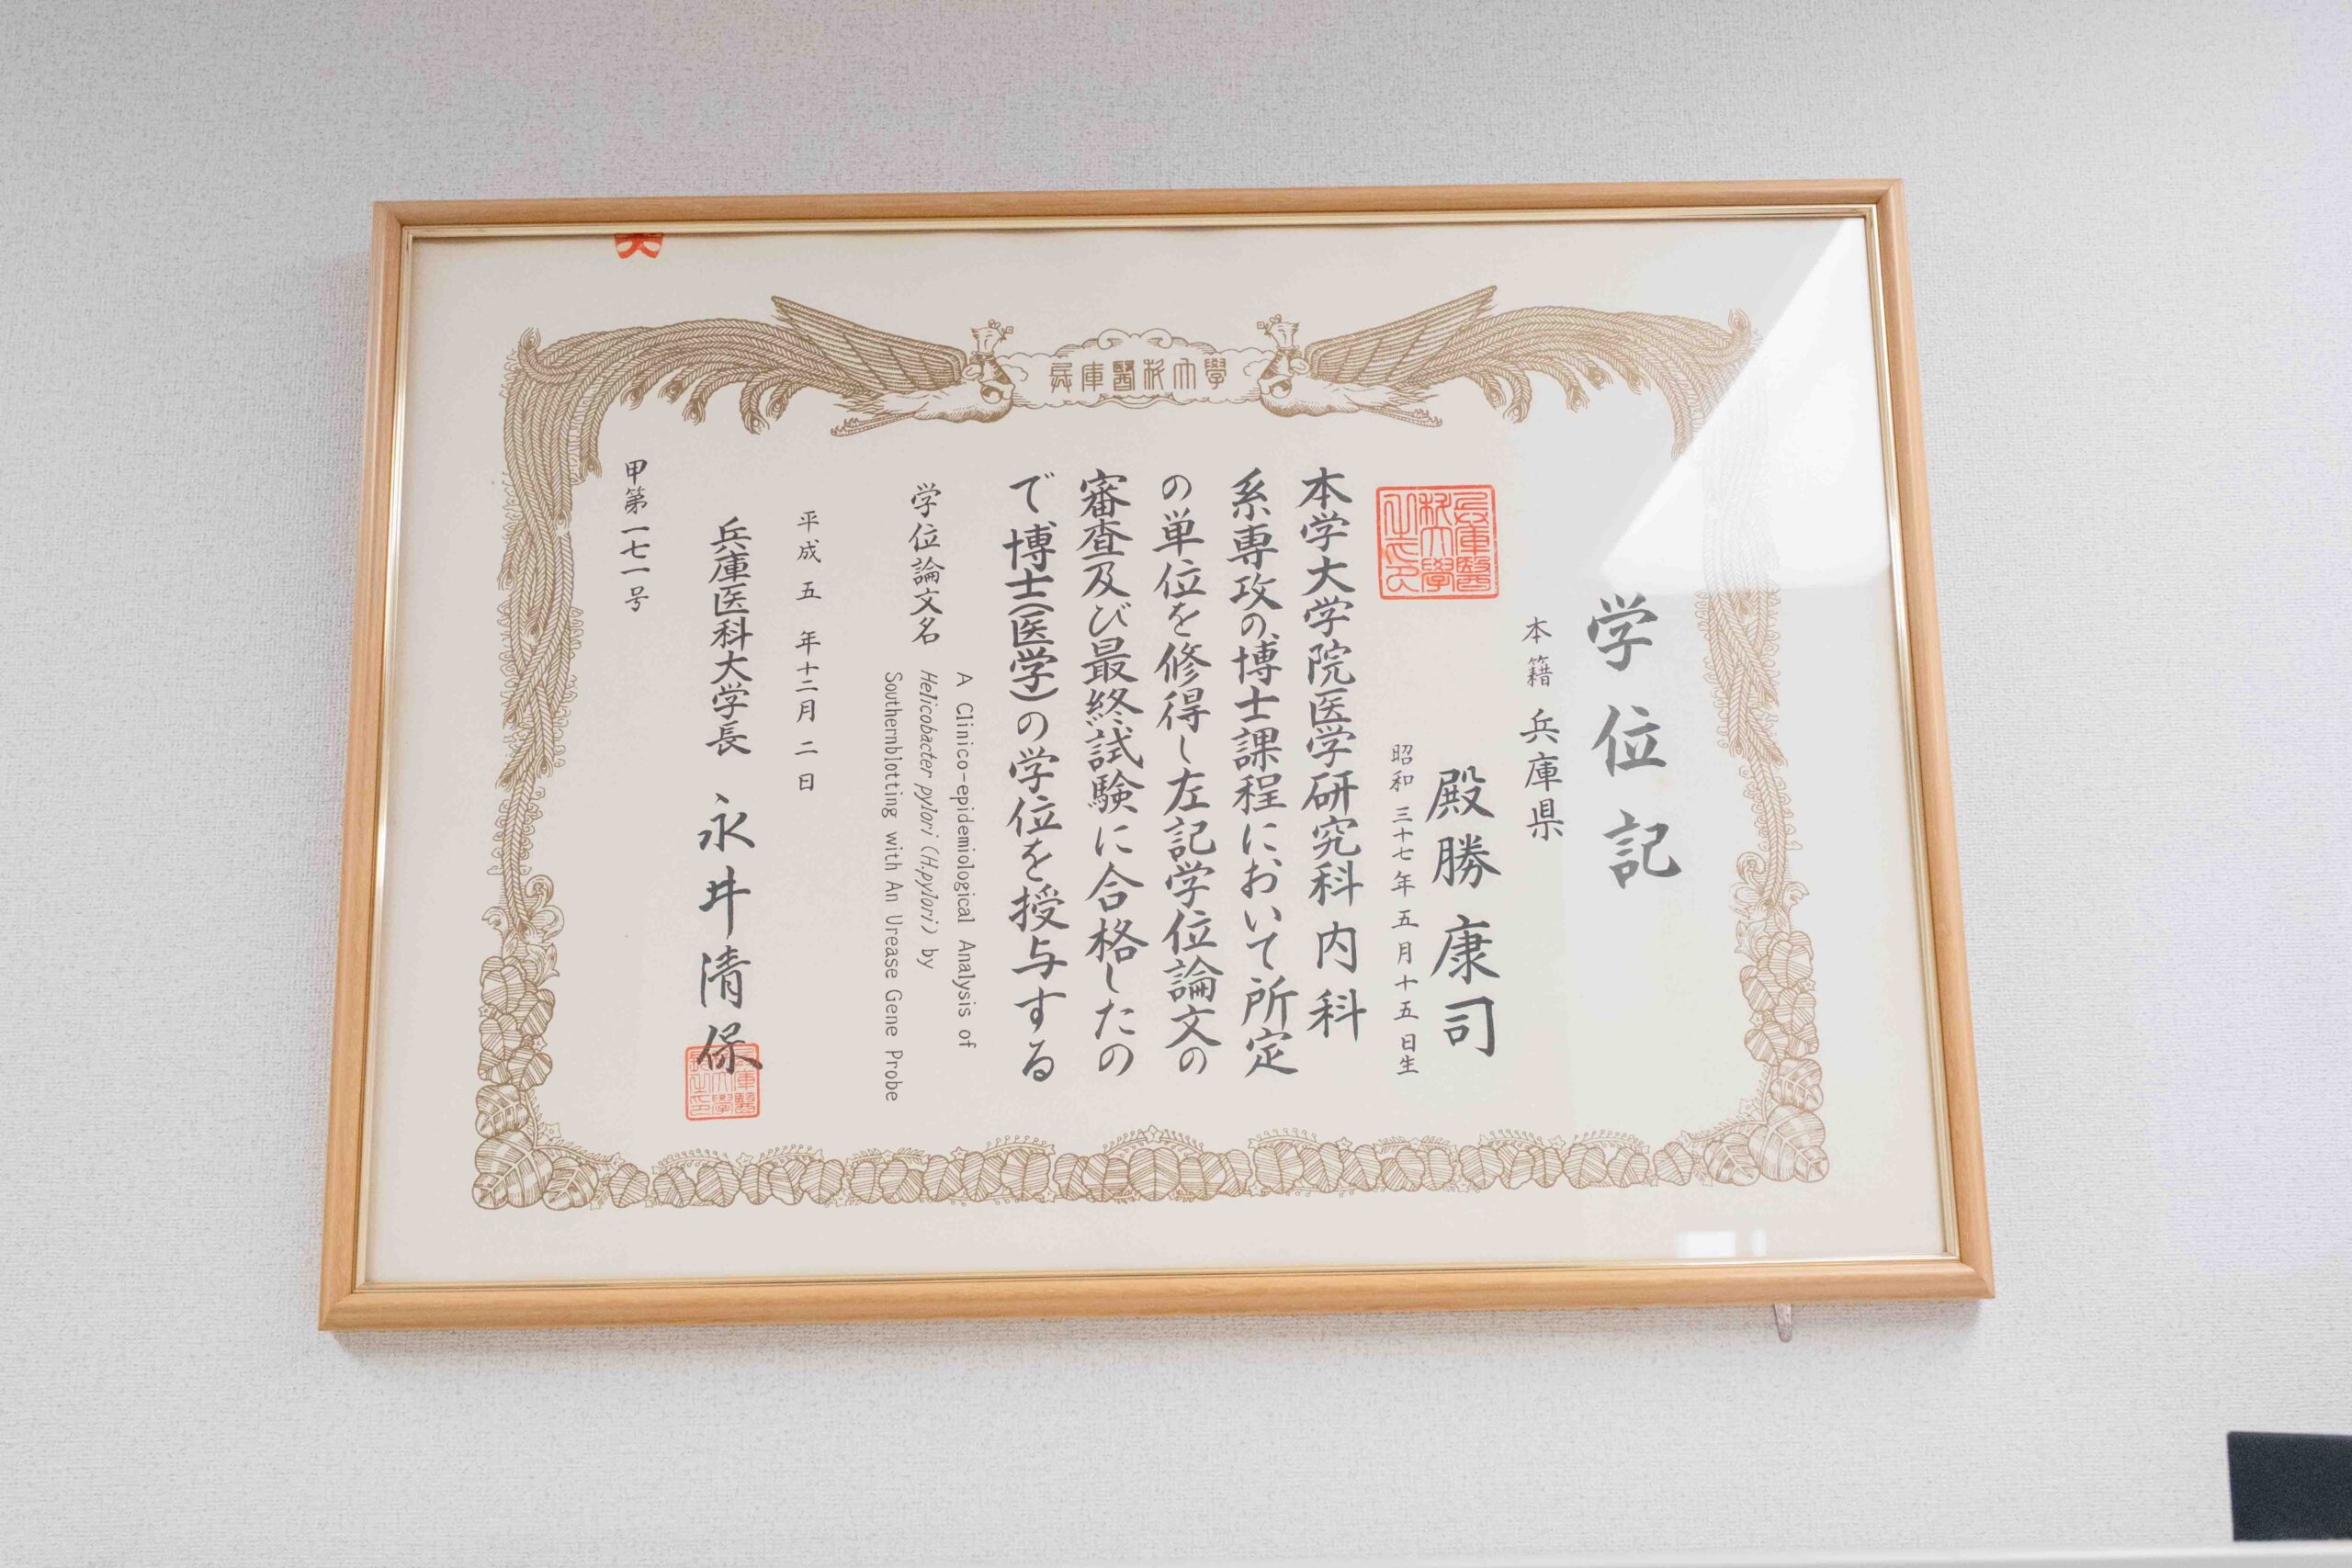 兵庫醫科大學
学位記
本籍 兵庫県
殿勝康司
昭和三十七年五月十五日生
兵庫醫科大學之印
本学大学院医学研究科内科
系専攻の博士課程において所定
の単位を修得し左記学位論文の
審査及び最終試験に合格したの
で博士(医学)の学位を授与する
学位論文名
A Clinico-epidemiological Analysis of
Helicobacter pylori (H.pylori) by
Southernblotting with An Urease Gene Probe
平成五年十二月二日
兵庫医科大学長 永井清保
甲第一七一号